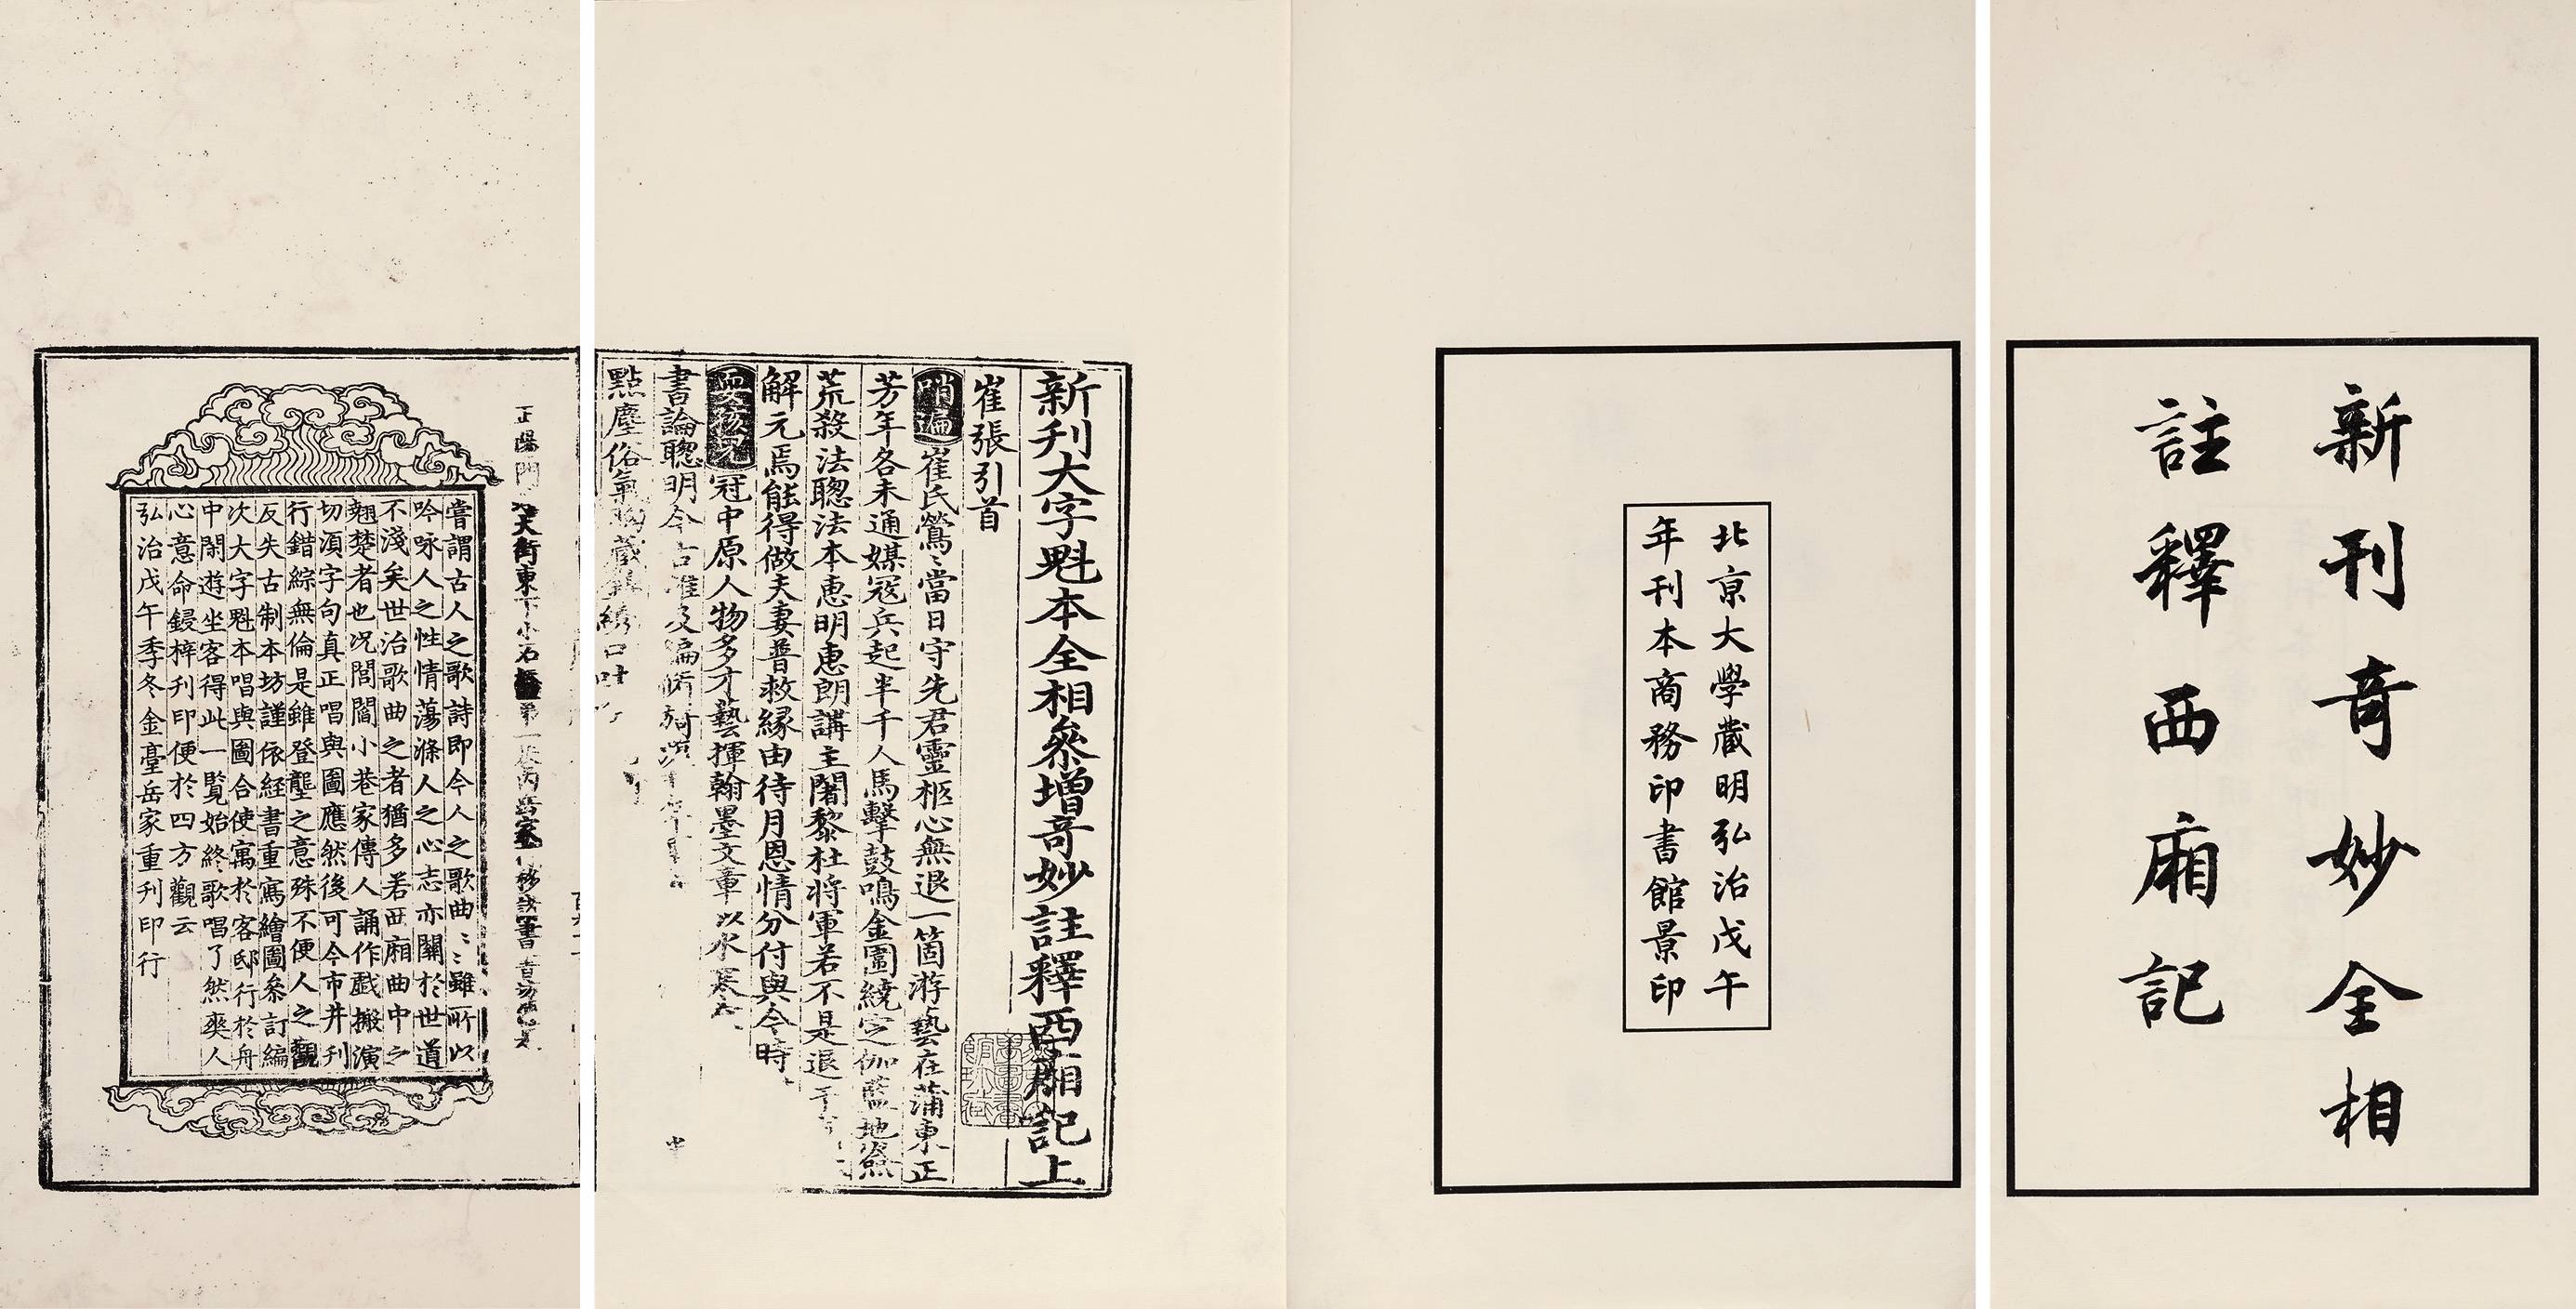 新刊奇妙全相
註釋西廂記
北京大學藏明弘治戊午
年刊本商務印書館景印
新刊大字魁本全相參增奇妙註釋西廂記上
崔張引首
哨遍崔氏鶯〻當日守先君靈柩心無退一箇游藝在蒲東正
芳年各未通媒冦兵起半千人馬擊鼓鳴金圍繞定伽藍地煞
荒殺法聰法本惠明惠朗講主闍黎杜將軍若不是退
解元焉能得做夫妻普救縁由待月恩情分付與今時
耍孩兒冠中原人物多才藝揮翰墨文章以水寒
書論聰明今古誰及
點塵俗氣
正陽門 大街東下小石橋第一巷內岳家 移諸書書坊
嘗謂古人之歌詩即今人之歌曲〻〻雖所以
吟咏人之性情蕩滌人之心志亦關於世道
不淺矣世治歌曲之者猶多若西廂曲中之
翹楚者也况閭閻小巷家傳人誦作戯搬演
切湏字句真正唱與圖應然後可今市井刋
行錯綜無倫是雖登壟之意殊不便人之觀
反失古制本坊謹依經書重寫繪圖參訂編
次大字魁本唱與圖合使寓於客邸行於舟
中閑遊坐客得此一覧始終歌唱了然爽人
心意命鋟梓刋印便於四方觀云
弘治戊午季冬金臺岳家重刋印行